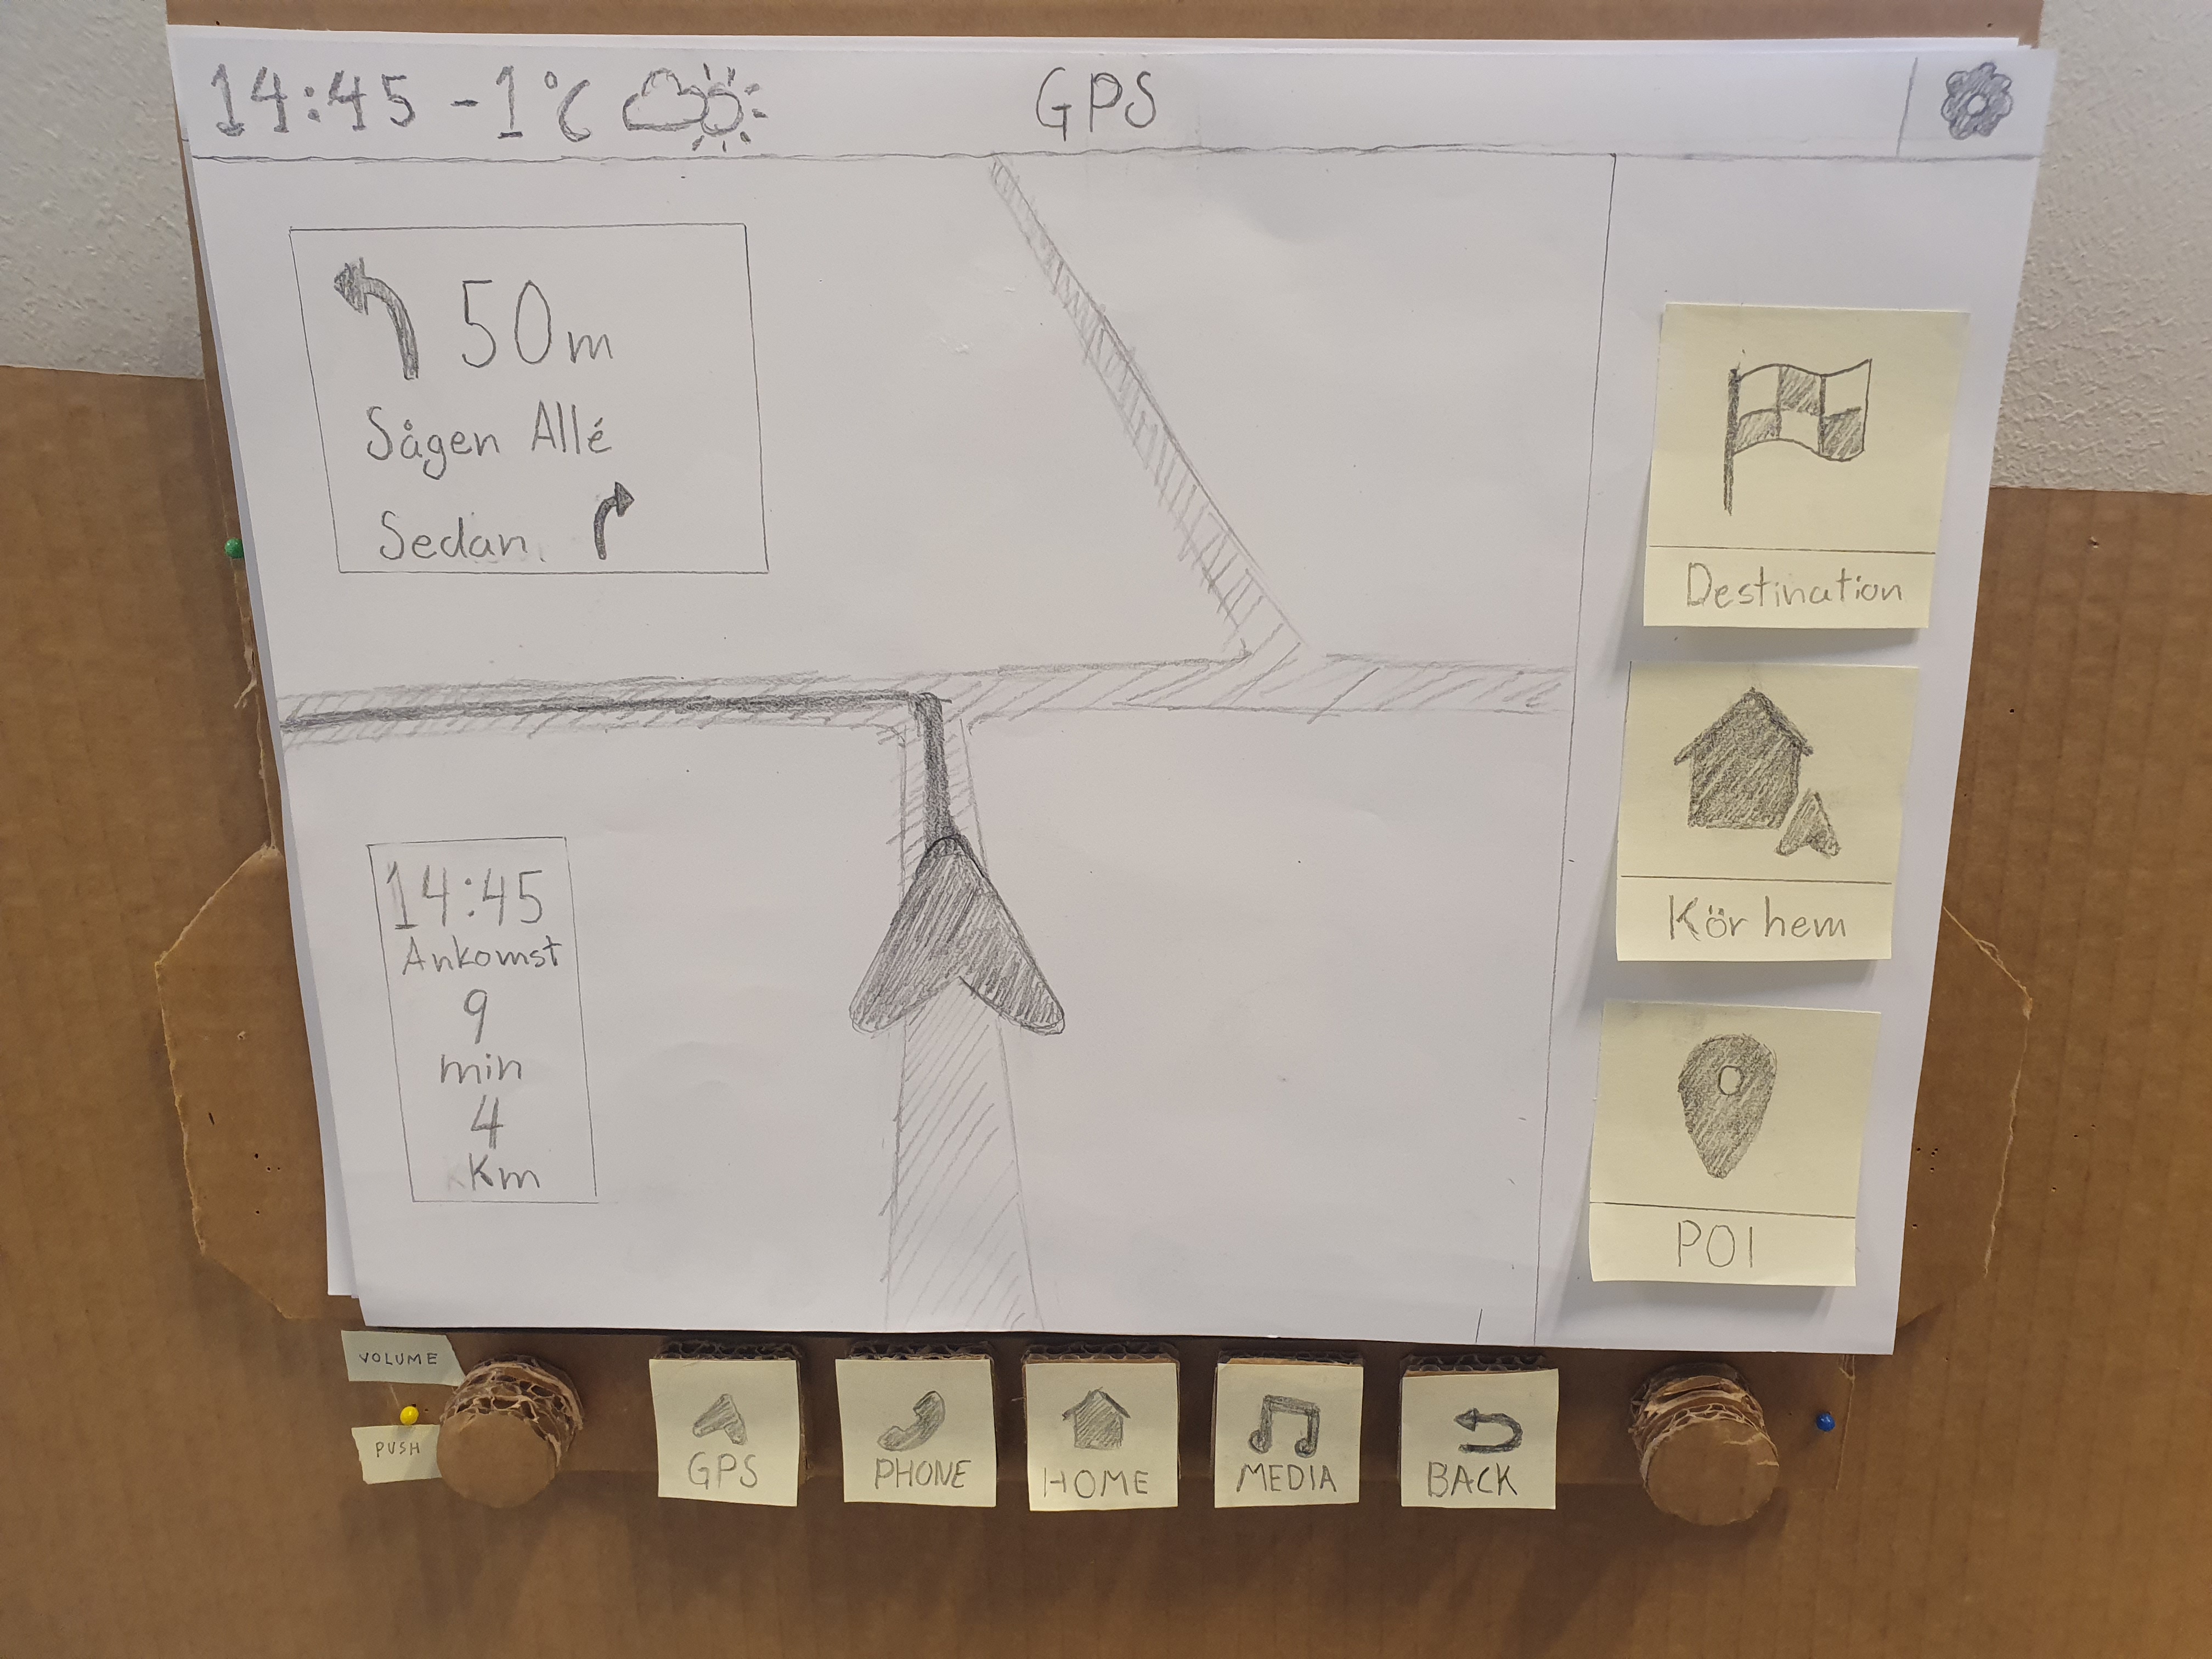 14:45 -1°C
GPS
50m
Sågen Allé
Sedan
14:45
Ankomst
9
min
4
Km
Destination
Kör hem
POI
VOLUME
PUSH
GPS
PHONE
HOME
MEDIA
BACK